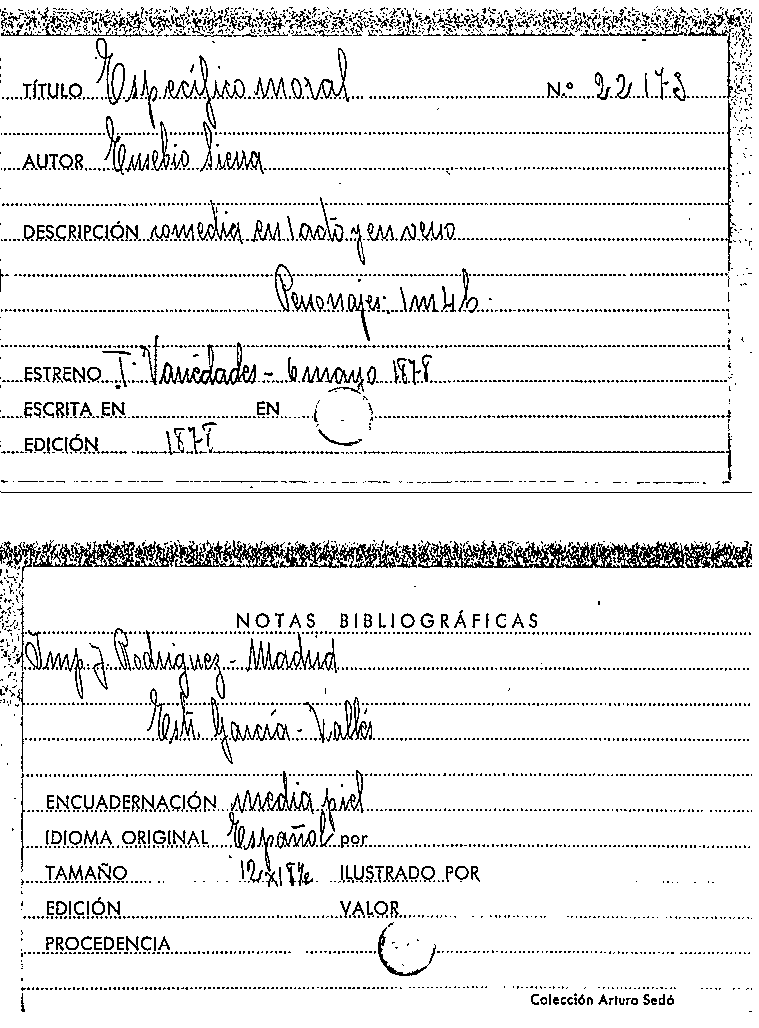 TÍTULO Específico moral N.º 22173
AUTOR Eusebio Sierra
DESCRIPCIÓN comedia en 1 acto y en verso
Personajes: 1m 4h.
ESTRENO T. Variedades - 6 mayo 1878
ESCRITA EN EN
EDICIÓN 1878
NOTAS BIBLIOGRÁFICAS
Imp. J. Rodriguez - Madrid
García - Vallés
ENCUADERNACIÓN media piel
IDIOMA ORIGINAL Español por
TAMAÑO 12x18½ ILUSTRADO POR
EDICIÓN VALOR
PROCEDENCIA
Colección Arturo Sedó